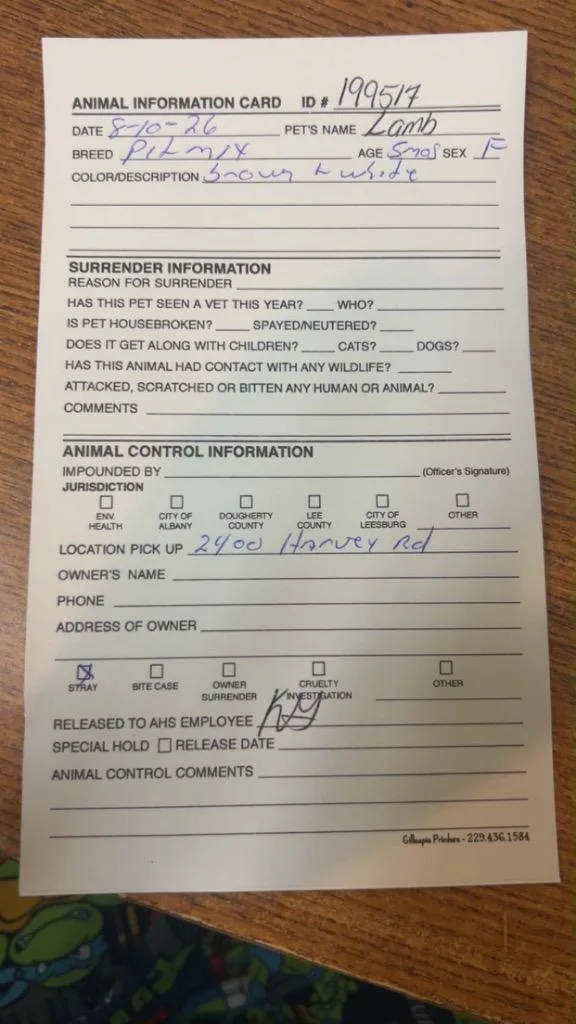 ANIMAL INFORMATION CARD ID # 199517
DATE 8-10-26 PET'S NAME Lamb
BREED Pit mix AGE 5mos SEX F
COLOR/DESCRIPTION brown + white
SURRENDER INFORMATION
REASON FOR SURRENDER
HAS THIS PET SEEN A VET THIS YEAR? WHO?
IS PET HOUSEBROKEN? SPAYED/NEUTERED?
DOES IT GET ALONG WITH CHILDREN? CATS? DOGS?
HAS THIS ANIMAL HAD CONTACT WITH ANY WILDLIFE?
ATTACKED, SCRATCHED OR BITTEN ANY HUMAN OR ANIMAL?
COMMENTS
ANIMAL CONTROL INFORMATION
IMPOUNDED BY (Officer's Signature)
JURISDICTION
ENV. HEALTH CITY OF ALBANY DOUGHERTY COUNTY LEE COUNTY CITY OF LEESBURG OTHER
LOCATION PICK UP 2400 Harvey Rd
OWNER'S NAME
PHONE
ADDRESS OF OWNER
STRAY BITE CASE OWNER SURRENDER CRUELTY INVESTIGATION OTHER
RELEASED TO AHS EMPLOYEE
SPECIAL HOLD RELEASE DATE
ANIMAL CONTROL COMMENTS
Gillespie Printers - 229.436.1584